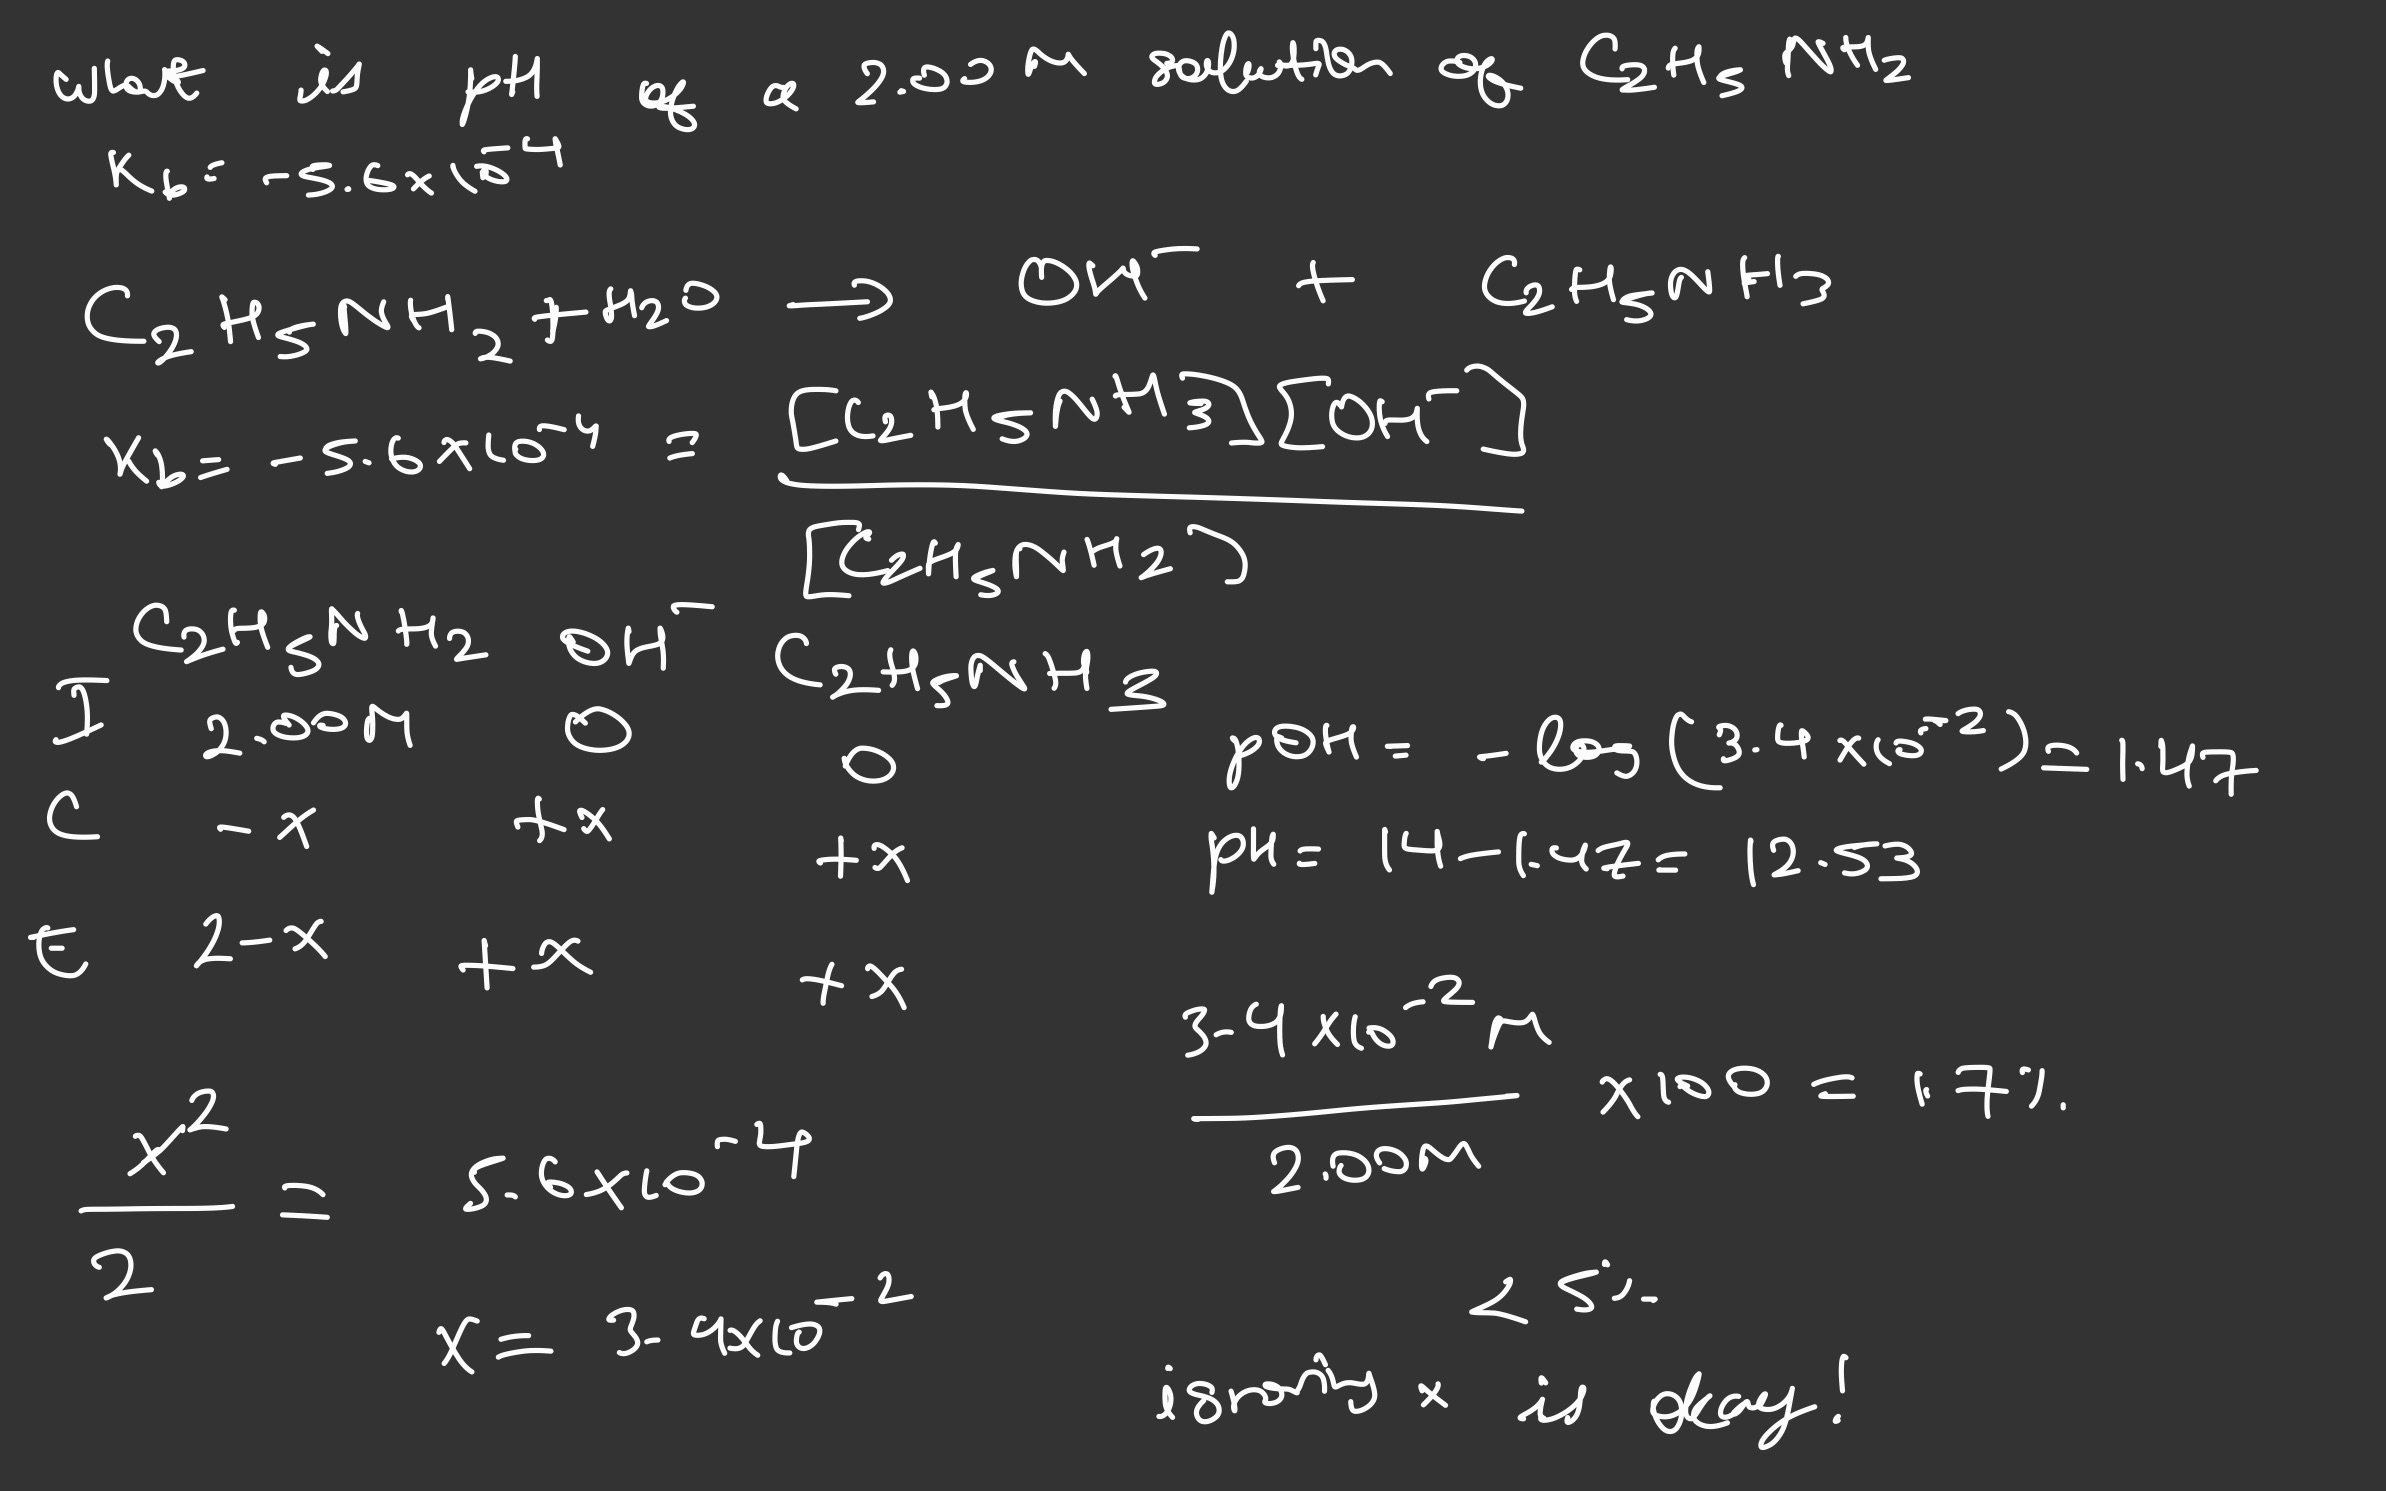 what is pH of a 2.00 M solution of C2H5NH2
Kb = -5.6x10^-4
C2H5NH2 + H2O → OH^- + C2H5NH3
Kb = -5.6x10^-4 = [C2H5NH3][OH^-]
[C2H5NH2]
C2H5NH2 OH^- C2H5NH3
I 2.00M 0 0
C -x +x +x
E 2-x +x +x
x^2
2
= 5.6x10^-4
x = 3.4x10^-2
pOH = -log(3.4x10^-2) = 1.47
pH = 14-1.47 = 12.53
3.4x10^-2 M
2.00M
x100 = 1.7%.
< 5%.
ignoring x is okay!